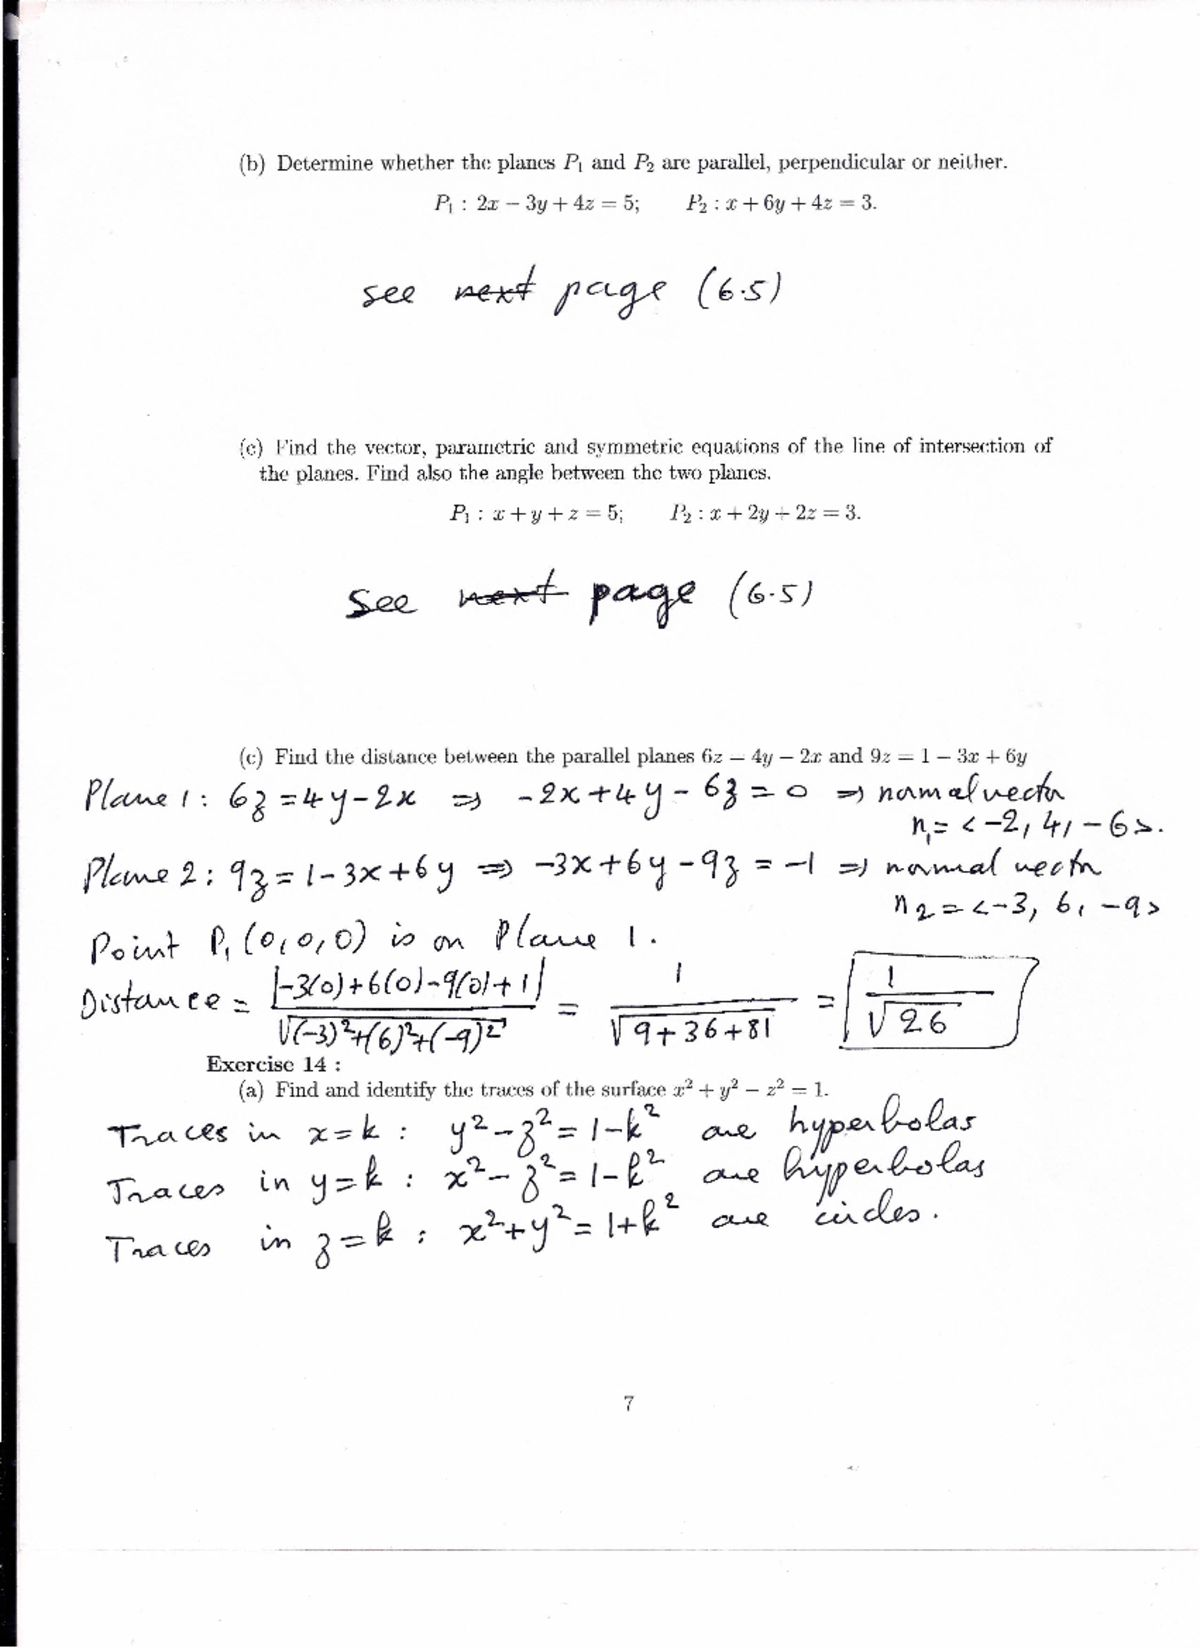 (b) Determine whether the planes P₁ and P₂ are parallel, perpendicular or neither.
P₁ : 2x − 3y + 4z = 5; P₂ : x + 6y + 4z = 3.
see next page (6.5)
(c) Find the vector, parametric and symmetric equations of the line of intersection of
the planes. Find also the angle between the two planes.
P₁ : x + y + z = 5; P₂ : x + 2y + 2z = 3.
See next page (6.5)
(c) Find the distance between the parallel planes 6z = 4y − 2x and 9z = 1 − 3x + 6y
Plane 1 : 6z = 4y − 2x ⇒ −2x + 4y − 6z = 0 ⇒ normal vector
n₁ = <−2, 4, −6>.
Plane 2 : 9z = 1 − 3x + 6y ⇒ −3x + 6y − 9z = −1 ⇒ normal vector
n₂ = <−3, 6, −9>
Point P₁ (0,0,0) is on Plane 1.
Distance = |−3(0)+6(0)−9(0)+1| / √((−3)²+(6)²+(−9)²) = 1 / √(9+36+81) = 1 / √26
Exercise 14 :
(a) Find and identify the traces of the surface x² + y² − z² = 1.
Traces in x=k : y² − z² = 1−k² are hyperbolas
Traces in y=k : x² − z² = 1−k² are hyperbolas
Traces in z=k : x² + y² = 1+k² are circles.
7